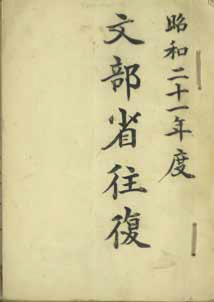 昭和二十一年度
文部省往復